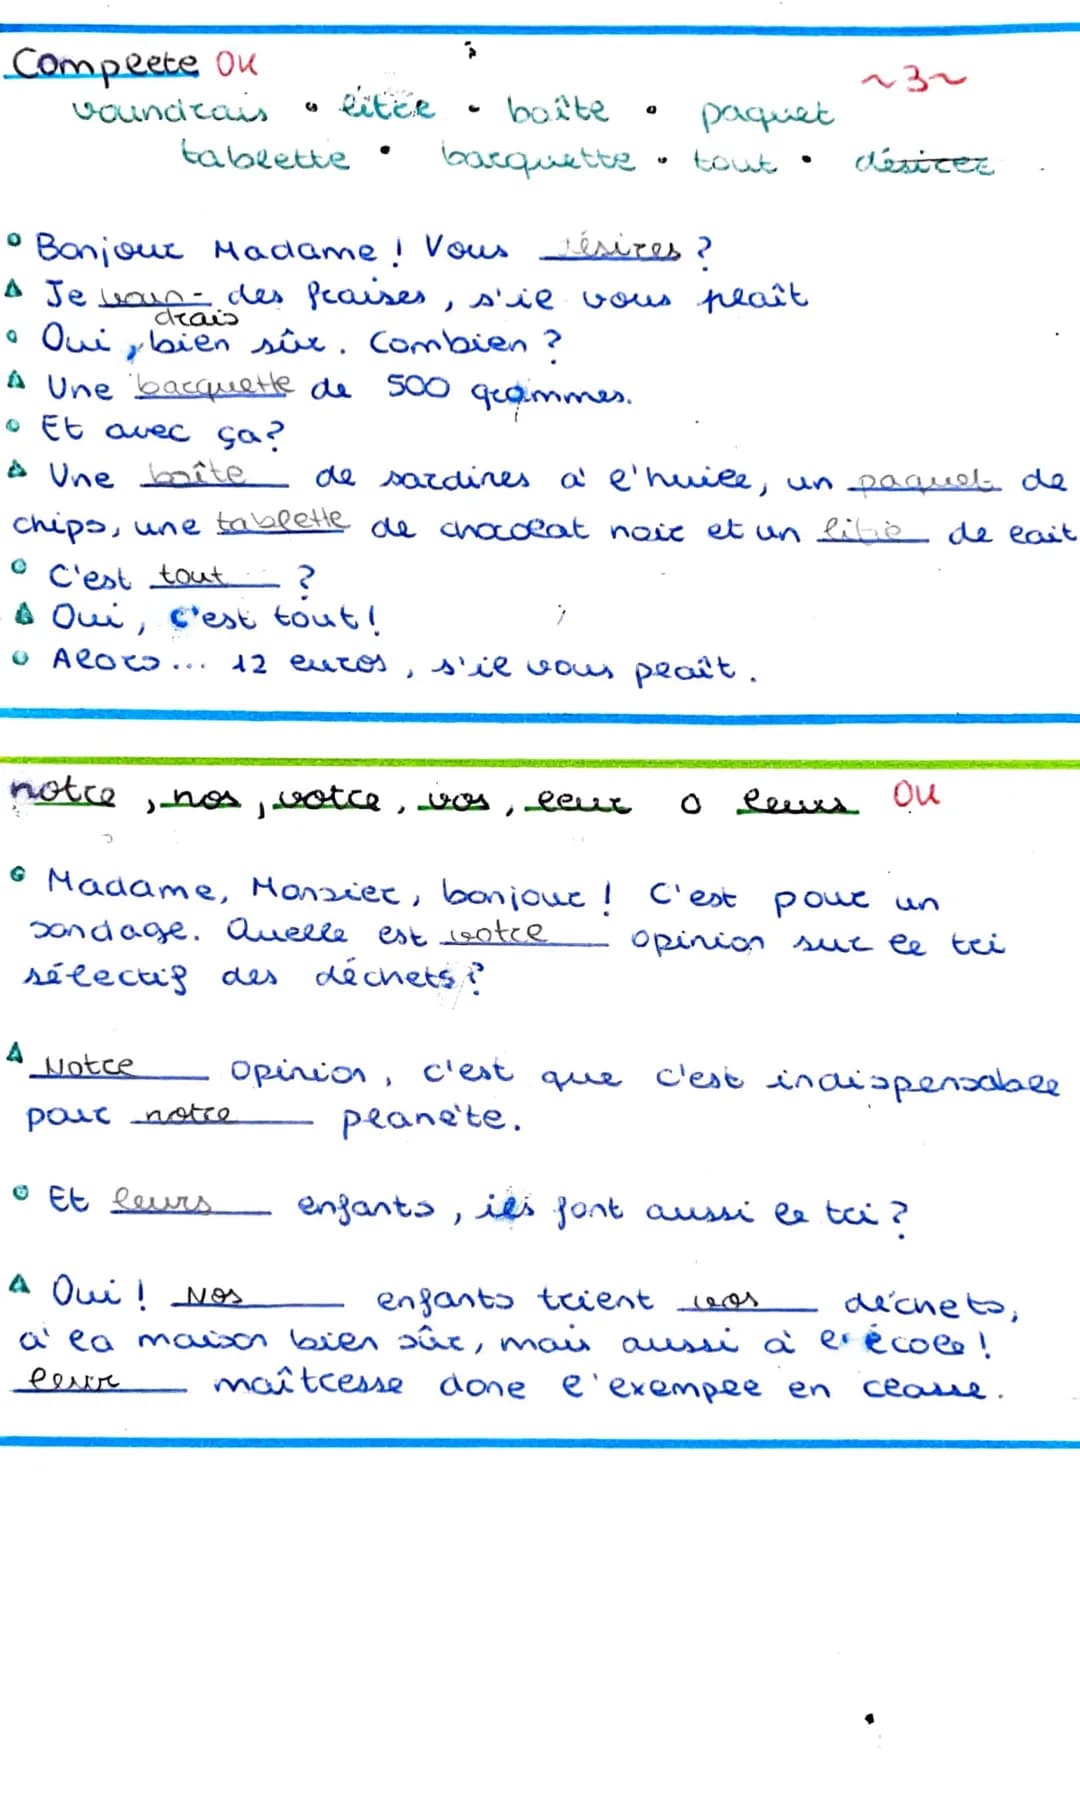 Complete OK
~3~
voundrais • litre • boîte • paquet
tablette • barquette • tout • désirez
• Bonjour Madame! Vous désires?
Je voun-drais des fraises, s'il vous plaît
• Oui, bien sûr. Combien?
Une barquette de 500 grammes.
• Et avec ça?
Une boîte de sardines à l'huile, un paquet de
chips, une tablette de chocolat noir et un litre de lait
• C'est tout ?
Oui, c'est tout!
• Alors... 12 euros, s'il vous plaît.
notre, nos, votre, vos, leur o leurs OK
• Madame, Monsier, bonjour! C'est pour un
sondage. Quelle est votre opinion sur le tri
sélectif des déchets?
Notre opinion, c'est que c'est indispensable
pour notre planète.
• Et leurs enfants, ils font aussi le tri?
Oui! Nos enfants trient vos déchets,
à la maison bien sûr, mais aussi à l'école!
leur maîtresse done l'exemple en classe.